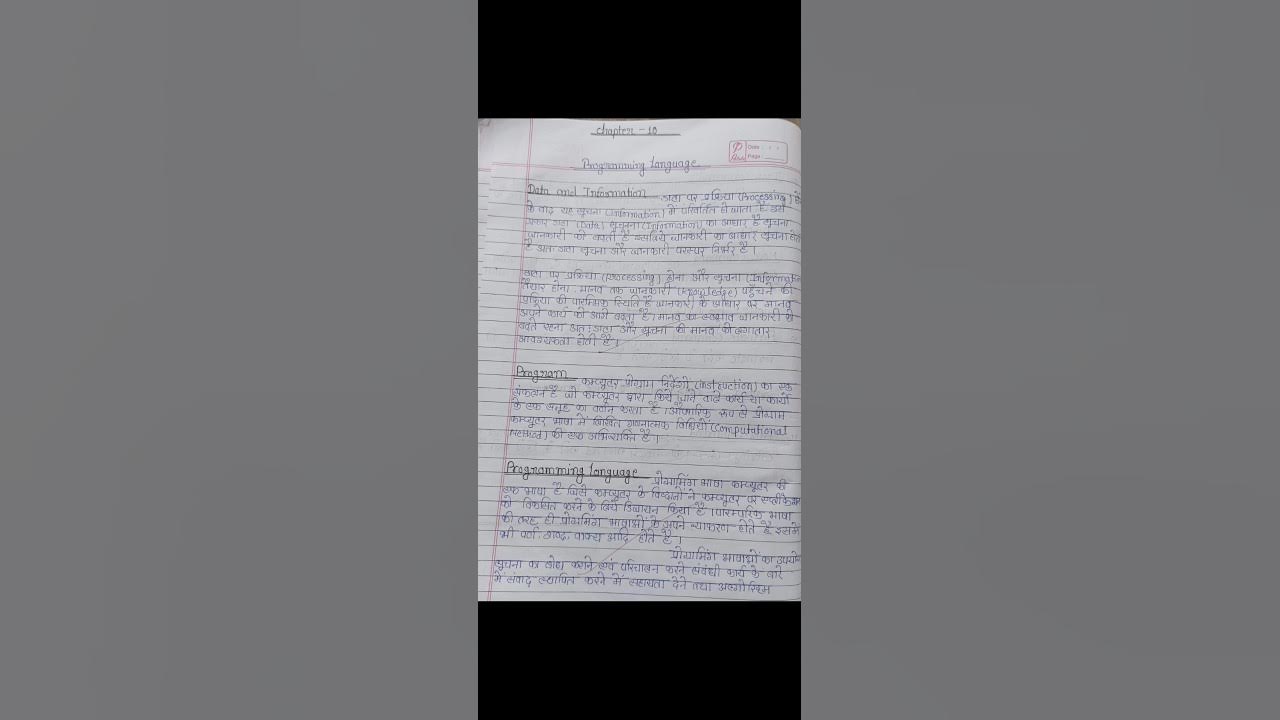 Chapter - 10
Date :
Page :
Programming Language
Data and Information डाटा पर प्रक्रिया (Processing)
के बाद यह सूचना (Information) में परिवर्तित हो जाता है इसी
प्रकार डाटा (Data) सूचना (Information) का आधार है सूचना
जानकारी को बढाती है इसलिये जानकारी का आधार सूचना होती
है अतः डाटा सूचना और जानकारी परस्पर निर्भर है।
डाटा पर प्रक्रिया (Processing) होना और सूचना (Information
तैयार होना मानव तक जानकारी (Knowledge) पहुँचने की
प्रक्रिया की प्रारम्भिक स्थिति है जानकारी के आधार पर मानव
अपने कार्य को आगे बढाता है। मानव का स्वभाव जानकारी को
बढाते रहना अतः डाटा और सूचना की मानव को लगातार
आवश्यकता होती है।
Program कम्प्यूटर प्रोग्राम निर्देशो (Instruction) का एक
संकलन है जो कम्प्यूटर द्वारा किये जाने वाले कार्य या कार्यो
के एक समूह का वर्णन करता है। औपचारिक रूप से प्रोग्राम
कम्प्यूटर भाषा में लिखित गणनात्मक विधियों (Computational
Method) की एक अभिव्यक्ति है।
Programming Language प्रोग्रामिंग भाषा कम्प्यूटर की
एक भाषा है जिसे कम्प्यूटर के विद्वानों ने कम्प्यूटर पर एप्लीकेशन
को विकसित करने के लिये डिजायन किया है। पारम्परिक भाषा
की तरह ही प्रोग्रामिंग भाषाओं के अपने व्याकरण होते है इसमें
भी वर्ण, शब्द, वाक्य आदि होते है।
प्रोग्रामिंग भाषाओं का उपयोग
सूचना का बोध कराने एवं परिचालन करने संबंधी कार्य के बारे
में संवाद स्थापित करने में सहायता देने तथा अल्गोरिथ्म